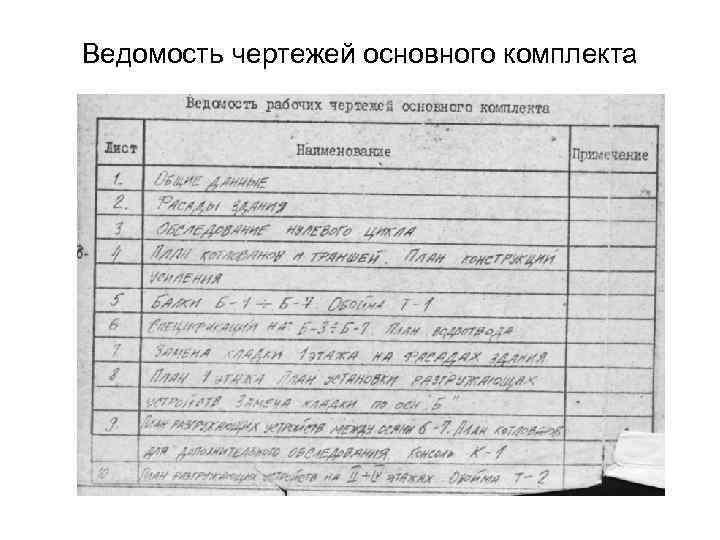 Ведомость чертежей основного комплекта
Ведомость рабочих чертежей основного комплекта
Лист Наименование Примечание
1. Общие данные
2. Фасады здания
3 Обследование нулевого цикла
4 План котлованов и траншей. План конструкций
усиления
5 Балки Б-1 ÷ Б-7. Обойма Т-1
6 Спецификация на Б-3÷Б-7. План водоотвода
7 Замена кладки 1 этажа на фасадах здания.
8 План 1 этажа План установки разгружающих
устройств Замена кладки по оси "Б"
9. План разгружающих устройств между осями 6-7. План котлованов
для дополнительного обследования. Консоль К-1
10 План разгружающих устройств на II÷IV этажах. Обойма Т-2